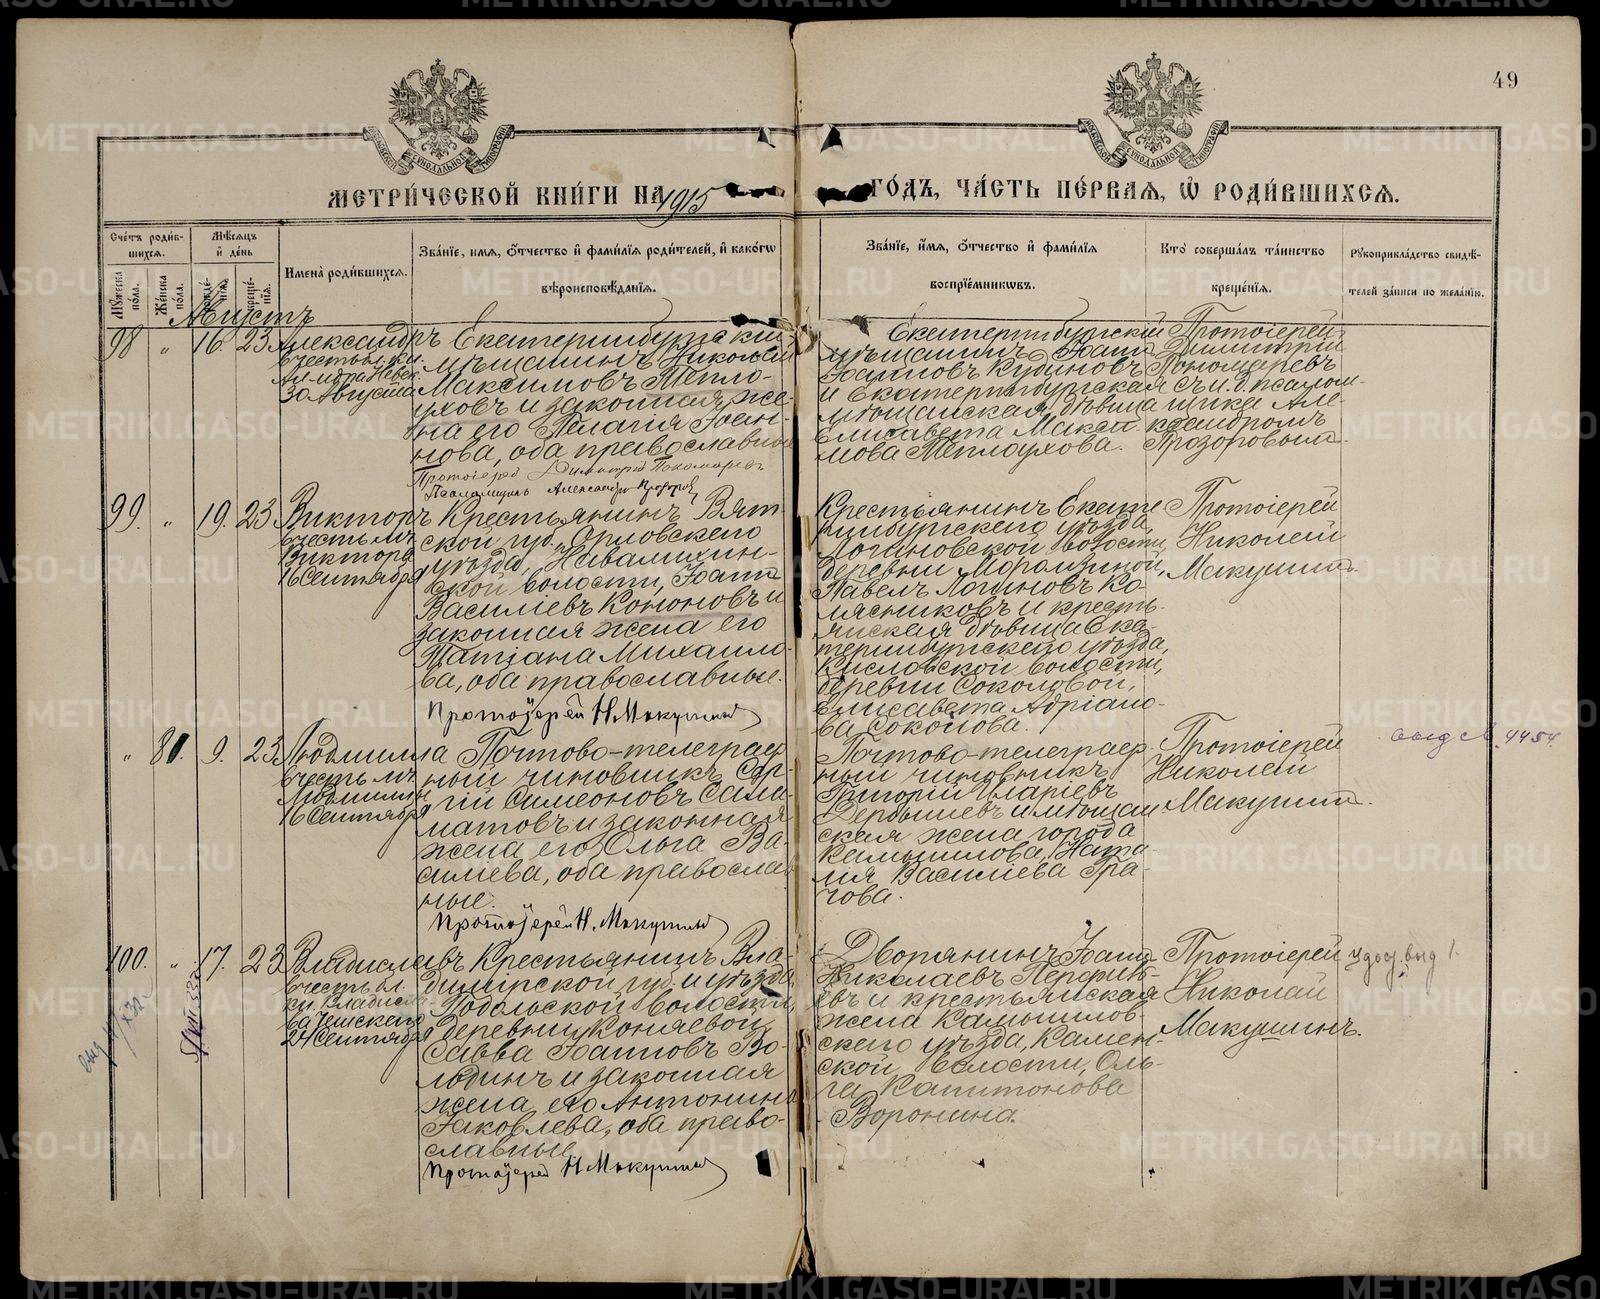 49
МЕТРИ́ЧЕСКОЙ КНИ́ГИ НА 1915 ГО́ДЪ, ЧА́СТЬ ПЕ́РВАЯ, Ѡ҆ РОДИ́ВШИХСЯ.
Сче́тъ роди́вшихся.
Мꙋ́жеска по́ла.
Же́нска по́ла.
Мѣ́сяцъ и҆ де́нь
рожде́нїя.
креще́нїя.
И҆мена̀ роди́вшихся.
Зва́нїе, и҆мя, ѻ҆́тчество и҆ фами́лїя роди́телей, и҆ како́гѡ
вѣроисповѣ́данїя.
Зва́нїе, и҆́мя, ѻ҆́тчество и҆ фами́лїя
воспрїе́мникѡвъ.
Кто̀ соверша́лъ та́инство
креще́нїя.
Рꙋкоприкла́дство свидѣ́-
телей за́писи по жела́нїю.
Августъ
98
"
16.
23
Александръ
въ честь бл. кн.
Ал-ндра Невск.
30 Августа
Екатеринбургскій
мѣщанинъ Николай
Максимовъ Тепло-
уховъ и законная же-
на его Пелагія Іоан-
нова, оба православные
Протоіерей Димитрій Пономаревъ
Псаломщикъ Александръ Прозоровъ
Екатеринбургскій
мѣщанинъ Іоаннъ
Іоанновъ Кудиновъ
и Екатеринбургская
мѣщанская дѣвица
Елисавета Макси-
мова Теплоухова.
Протоіерей
Димитрій
Пономаревъ
съ и. д. псалом-
щика Але-
ксандромъ
Прозоровымъ.
99.
"
19.
23
Викторъ
въ честь мч.
Виктора
16 Сентября
Крестьянинъ Вят-
ской губ., Орловскаго
уѣзда,
волости, Іоаннъ
Василіевъ Кононовъ и
законная жена его
Татіана Михаило-
ва, оба православные.
Протоіерей Н. Макушинъ
Крестьянинъ Екате-
ринбургскаго уѣзда,
Логиновской волости,
деревни
Павелъ Логиновъ Ко-
лясниковъ и кресть-
янская дѣвица Ека-
теринбургскаго уѣзда,
Кисловской волости,
деревни Соколовой,
Елисавета Адріано-
ва Соколова.
Протоіерей
Николай
Макушинъ.
"
80.
9.
23
Людмилла
въ честь мч.
Людмиллы
16 Сентября
Почтово-телеграф-
ный чиновникъ Сер-
гій Симеоновъ Сала-
матовъ и законная
жена его Ольга Ва-
силіева, оба православ-
ные.
Протоіерей Н. Макушинъ
Почтово-телеграф-
ный чиновникъ
Григорій Иларіевъ
Дербышевъ и мѣщан-
ская жена города
Камышлова Ната-
лія Васильева Гра-
чова.
Протоіерей
Николай
Макушинъ.
100.
"
17.
23
Владиславъ
въ честь бл.
кн. Владисла-
ва Чешскаго
24 Сентября
Крестьянинъ Вла-
димірской губ. и уѣзда,
волости,
деревни Коняевой,
Савва Іоанновъ Во-
лодинъ и законная
жена его Антонина
Іаковлева, оба право-
славные.
Протоіерей Н. Макушинъ
Дворянинъ Іоаннъ
Николаевъ
и крестьянская
жена Камышлов-
скаго уѣзда, Камен-
ской волости, Оль-
га Капитонова
Воронина.
Протоіерей
Николай
Макушинъ.
удост. выд